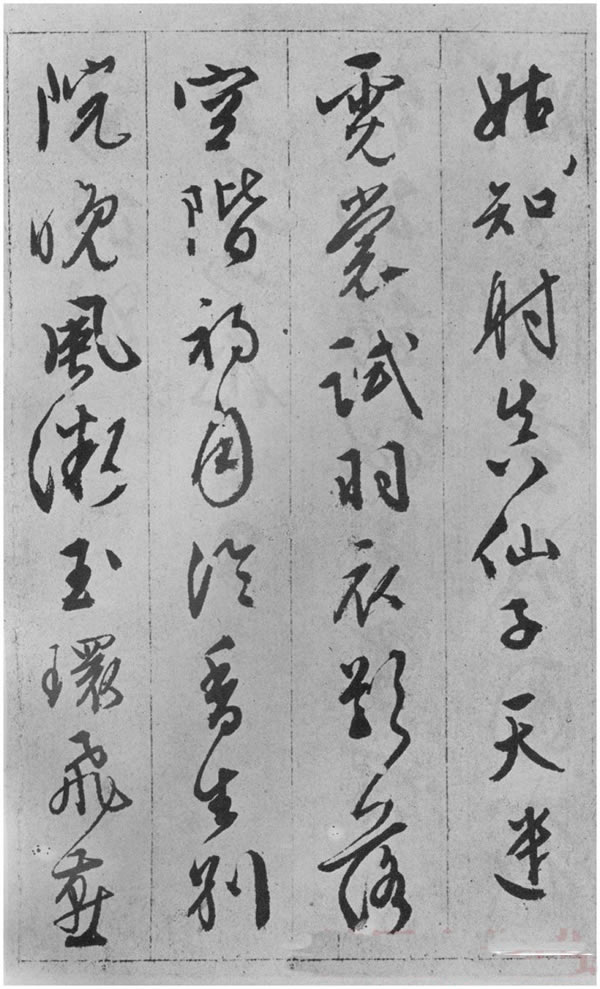 姑知射真仙子天遣
霓裳試羽衣影落
空階初月冷香生別
院晚風微玉環飛燕